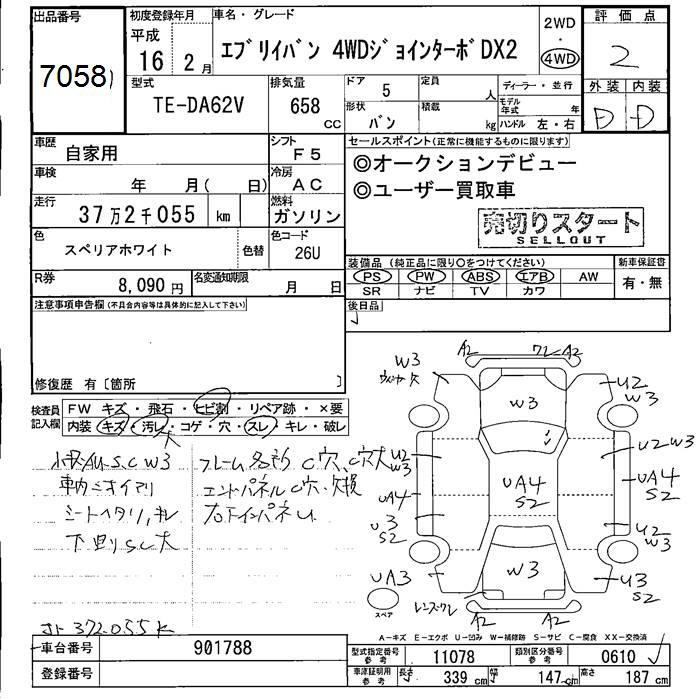 出品番号
7058
初度登録年月
平成
16 2 月
車名・グレード
エブリイバン 4WDジョインターボDX2
2WD
・
4WD
評価点
2
外装 内装
D D
型式
TE-DA62V
排気量
658
cc
ドア
5
定員
人
形状
バン
積載
kg
ディーラー・並行
モデル年式 年
ハンドル 左・右
車歴
自家用
シフト
F5
車検
年 月( 日)
冷房
AC
走行
37万2千055 km
燃料
ガソリン
色
スペリアホワイト
色替
色コード
26U
R券
8,090 円
名変通知期限
月 日
セールスポイント(正常に機能するものに限ります)
◎オークションデビュー
◎ユーザー買取車
売切りスタート
SELLOUT
装備品(純正品に限り○をつけてください)
PS PW ABS エアB AW
SR ナビ TV カワ
新車保証書
有・無
後日品
注意事項申告欄(不具合内容等は具体的に記入して下さい)
修復歴 有〔箇所 〕
検査員
記入欄
FW キズ・飛石・ヒビ割・リペア跡・×要
内装 キズ・汚レ・コゲ・穴・スレ・キレ・破レ
大
小キズ AU.S.C W3
車内ニオイアリ
シートヘタリ,キレ
下廻りSC大
フレーム各所 C穴、C穴大
エンドパネルC穴・欠損
右下インパネU
372055K
A2 ワレ A2
W3
W3
U2
W3
U2
W3
UA4
U3
S2
UA3
スペア
UA4
S2
W3
U2 W3
UA4
S2
U2
W3
U3
S2
レンズワレ
A2 A2
A-キズ E-エクボ U-凹み W-補修跡 S-サビ C-腐食 XX-交換済
車台番号
901788
登録番号
型式指定番号
参考
11078
類別区分番号
参考
0610
車庫証明用
参考
長さ
339 cm
幅
147 cm
高さ
187 cm